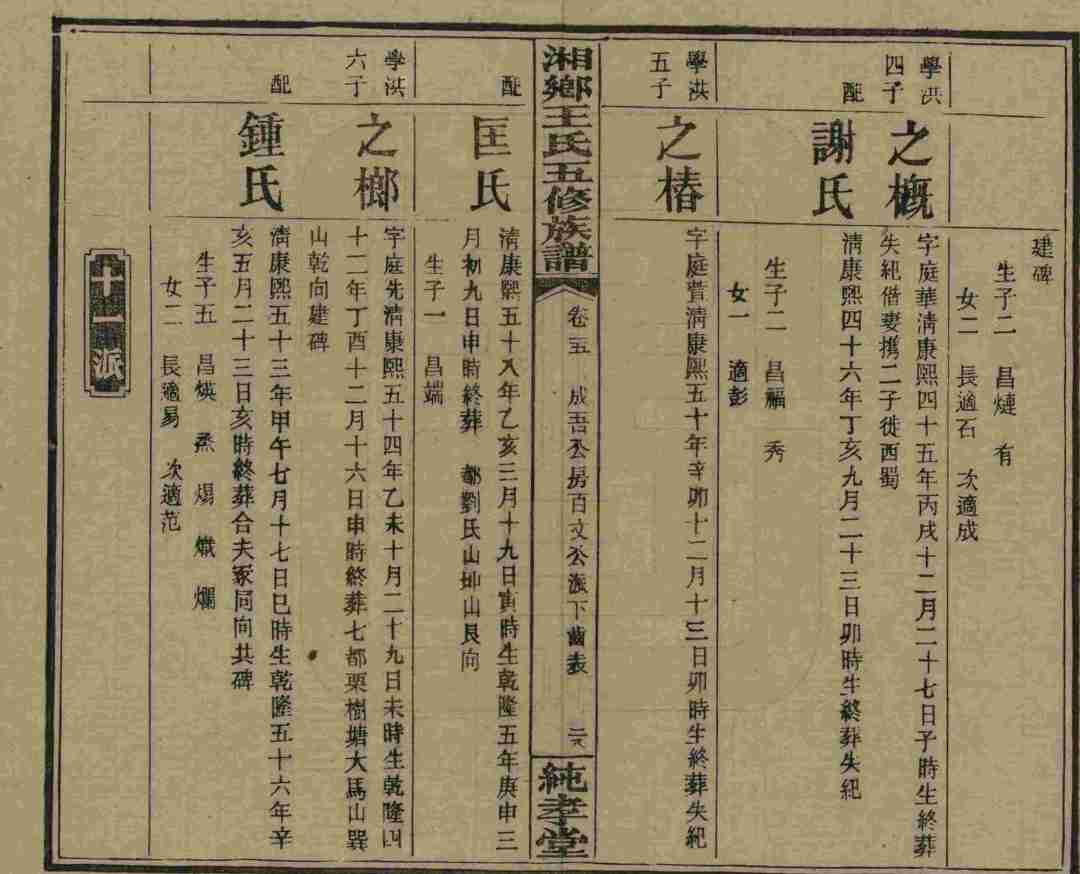 建碑
生子二 昌熢 有
女二 長適石 次適成
學洪四子
之概
字庭華清康熙四十五年丙戌十二月二十七日子時生終葬
失紀偕妻攜二子徙西蜀
配
謝氏
清康熙四十六年丁亥九月二十三日卯時生終葬失紀
生子二 昌福 秀
女一 適彭
學洪五子
之椿
字庭萱清康熙五十年辛卯十二月十三日卯時生終葬失紀
湘鄉王氏五修族譜
卷五 成吾公房百文公派下齒表
純孝堂
配
匡氏
清康熙五十八年乙亥三月十九日寅時生乾隆五年庚申三
月初九日申時終葬 都劉氏山艮向
生子一 昌端
學洪六子
之榔
字庭先清康熙五十四年乙未十月二十九日未時生乾隆四
十二年丁酉十二月十六日申時終葬七都栗樹塘大馬山巽
山乾向建碑
配
鍾氏
清康熙五十三年甲午七月十七日巳時生乾隆五十六年辛
亥五月二十三日亥時終葬合夫冢同向共碑
生子五 昌煐 烝 煬 熾 爛
女二 長適易 次適范
派